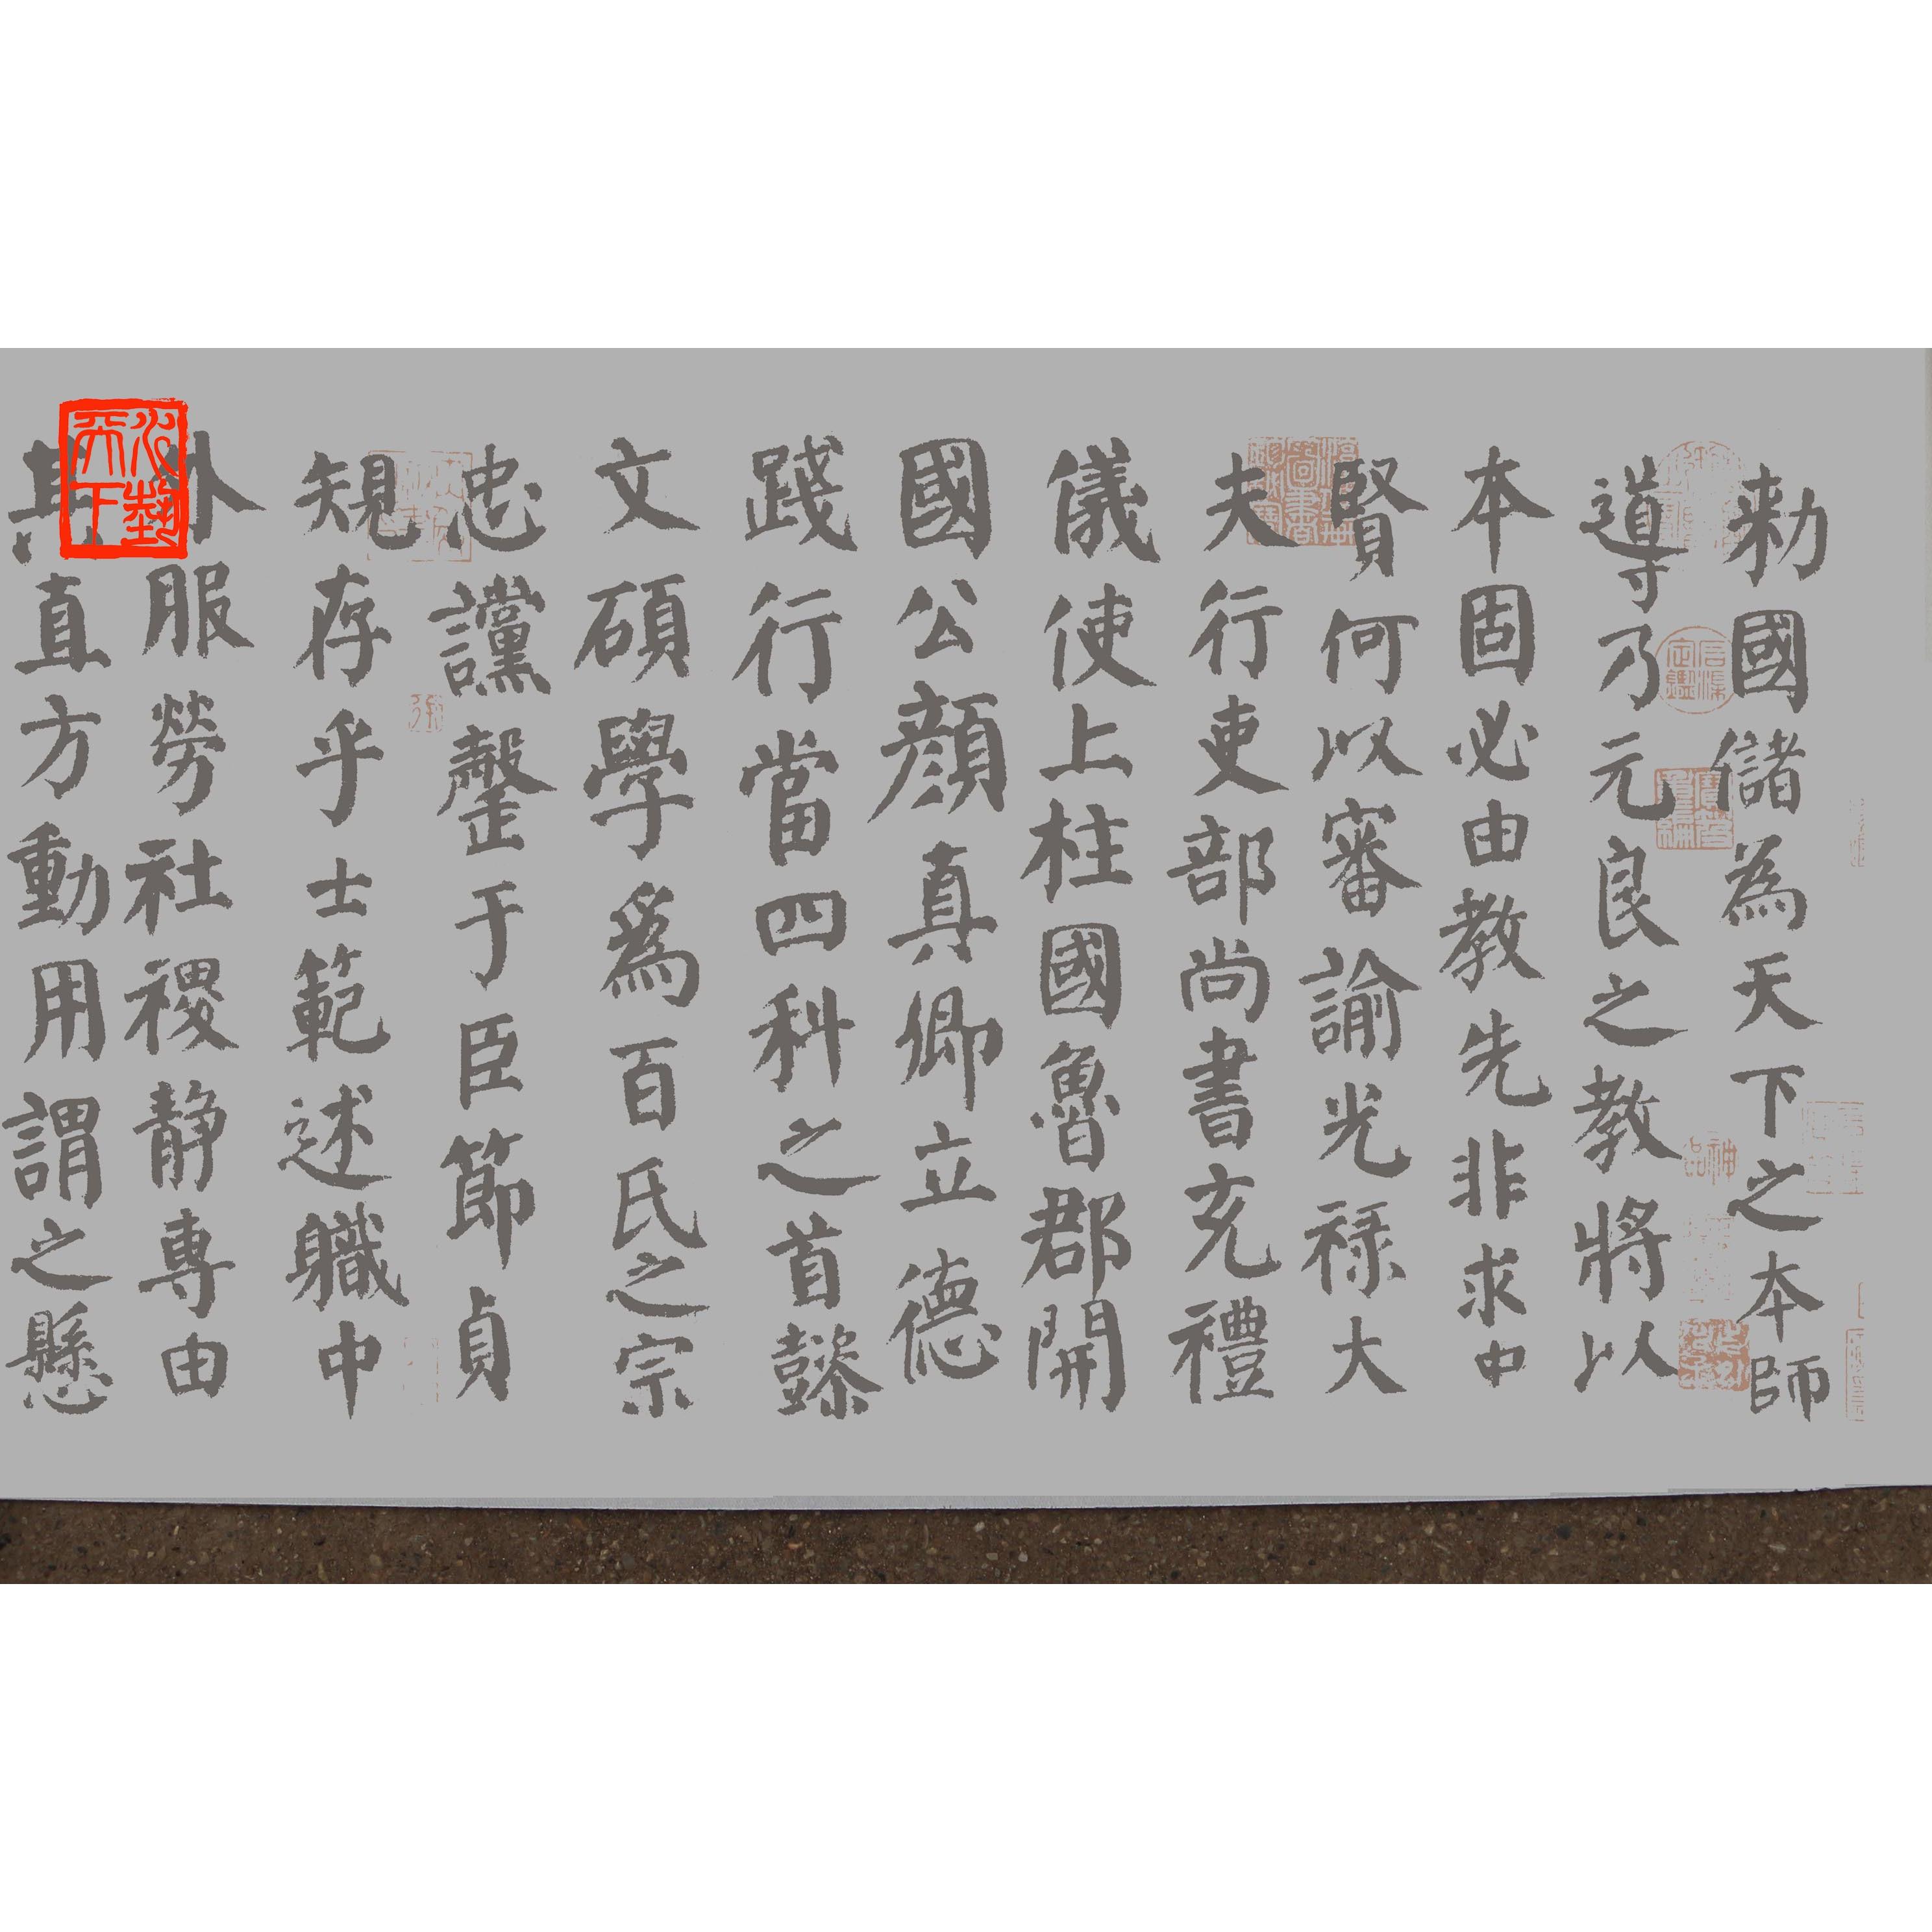 勅國儲為天下之本師
導乃元良之教將以
本固必由教先非求中
賢何以審諭光禄大
夫行吏部尚書充禮
儀使上柱國魯郡開
國公顔真卿立德
踐行當四科之首懿
文碩學爲百氏之宗
忠讜罄于臣節貞
規存乎士範述職中
外服勞社稷静專由
其直方動用謂之懸